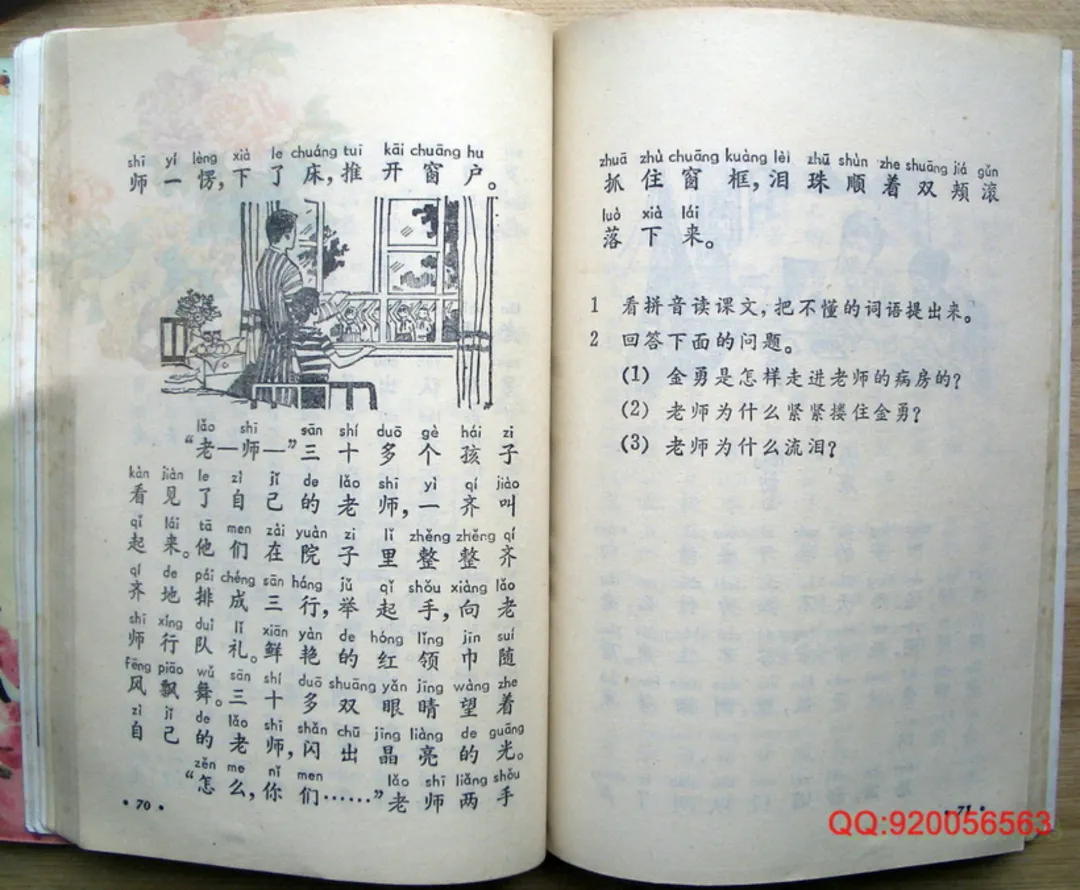 shī yí lèng xià le chuáng tuī kāi chuāng hu
师一愣，下了床，推开窗户。
lǎo shī sān shí duō gè hái zi
“老—师—”三十多个孩子
kàn jiàn le zì jǐ de lǎo shī yì qí jiào
看见了自己的老师，一齐叫
qǐ lái tā men zài yuàn zi lǐ zhěng zhěng qí
起来。他们在院子里整整齐
qí de pái chéng sān háng jǔ qǐ shǒu xiàng lǎo
齐地排成三行，举起手，向老
shī xíng duì lǐ xiān yàn de hóng lǐng jīn suí
师行队礼。鲜艳的红领巾随
fēng piāo wǔ sān shí duō shuāng yǎn jīng wàng zhe
风飘舞。三十多双眼睛望着
zì jǐ de lǎo shī shǎn chū jīng liàng de guāng
自己的老师，闪出晶亮的光。
zěn me nǐ men lǎo shī liǎng shǒu
“怎么，你们……”老师两手
• 70 •
zhuā zhù chuāng kuàng lèi zhū shùn zhe shuāng jiá gǔn
抓住窗框，泪珠顺着双颊滚
luò xià lái
落下来。
1 看拼音读课文，把不懂的词语提出来。
2 回答下面的问题。
(1) 金勇是怎样走进老师的病房的？
(2) 老师为什么紧紧搂住金勇？
(3) 老师为什么流泪？
• 71 •
QQ:920056563